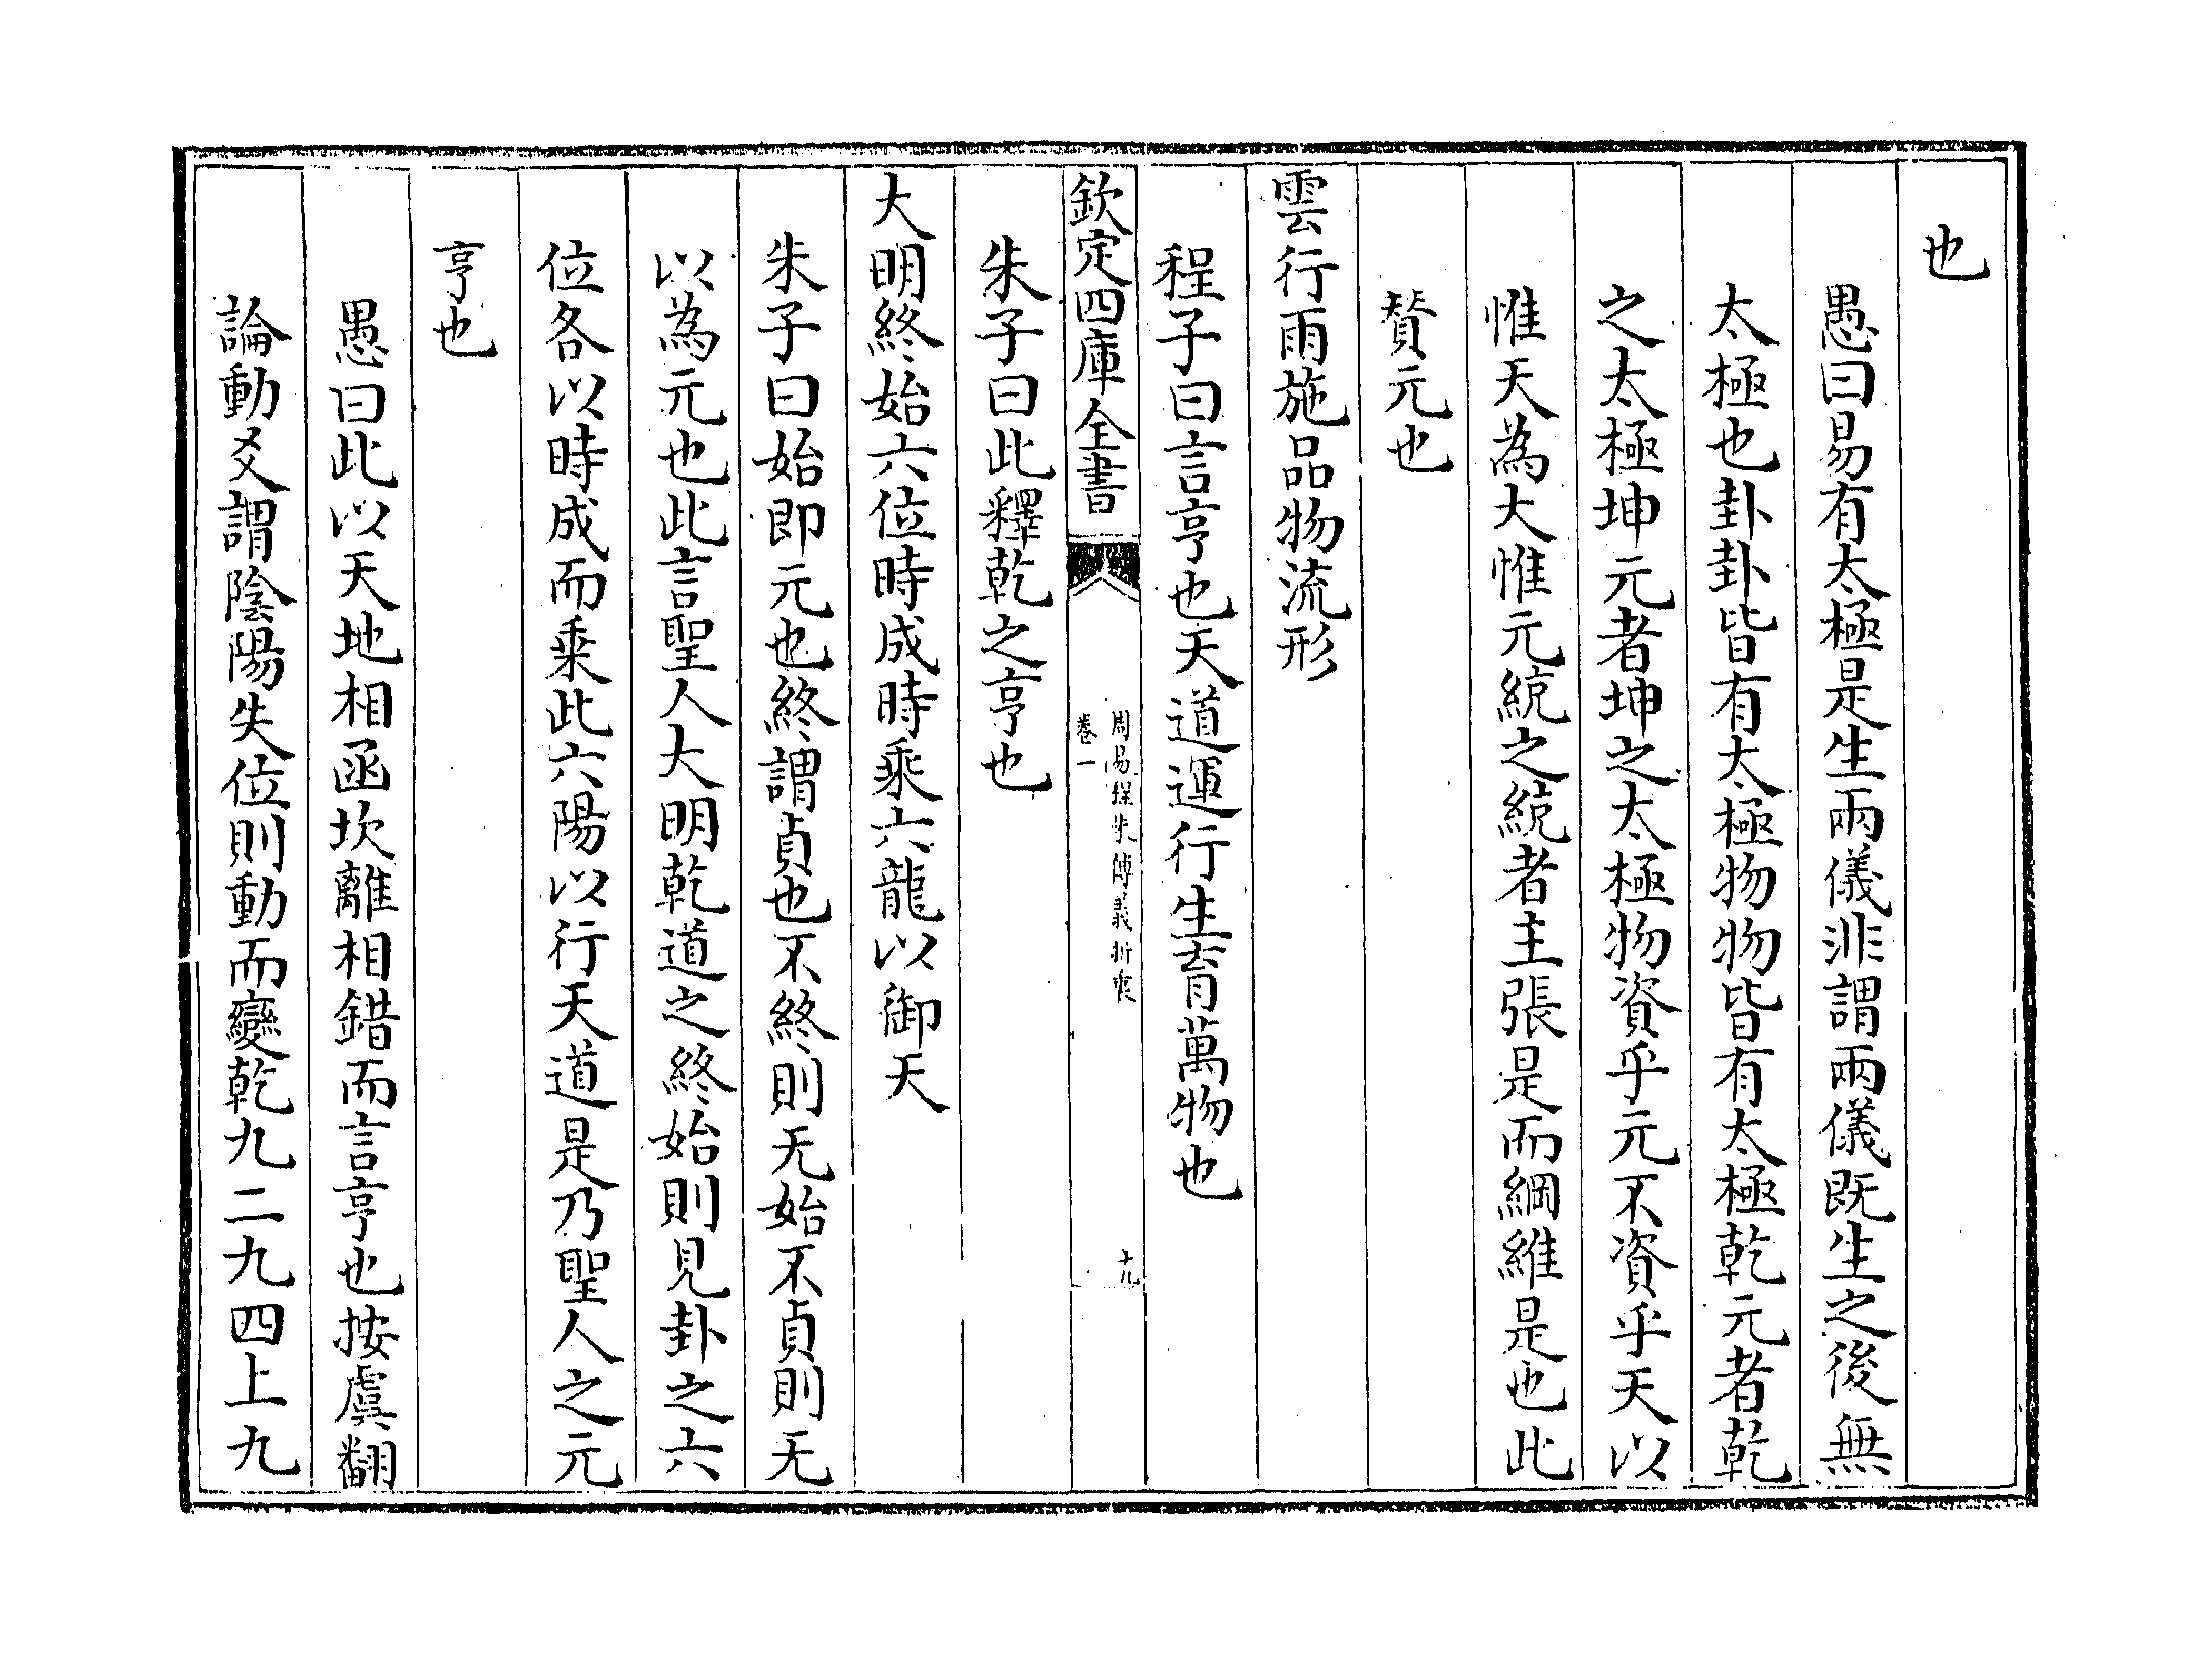 也
愚曰易有太極是生兩儀非謂兩儀既生之後無
太極也卦卦皆有太極物物皆有太極乾元者乾
之太極坤元者坤之太極物資乎元不資乎天以
惟天為大惟元統之統者主張是而綱維是也此
賛元也
雲行雨施品物流形
程子曰言亨也天道運行生育萬物也
欽定四庫全書
周易程朱傳義折衷
卷一
十九
朱子曰此釋乾之亨也
大明終始六位時成時乘六龍以御天
朱子曰始即元也終謂貞也不終則无始不貞則无
以為元也此言聖人大明乾道之終始則見卦之六
位各以時成而乘此六陽以行天道是乃聖人之元
亨也
愚曰此以天地相函坎離相錯而言亨也按虞翻
論動爻謂陰陽失位則動而變乾九二九四上九